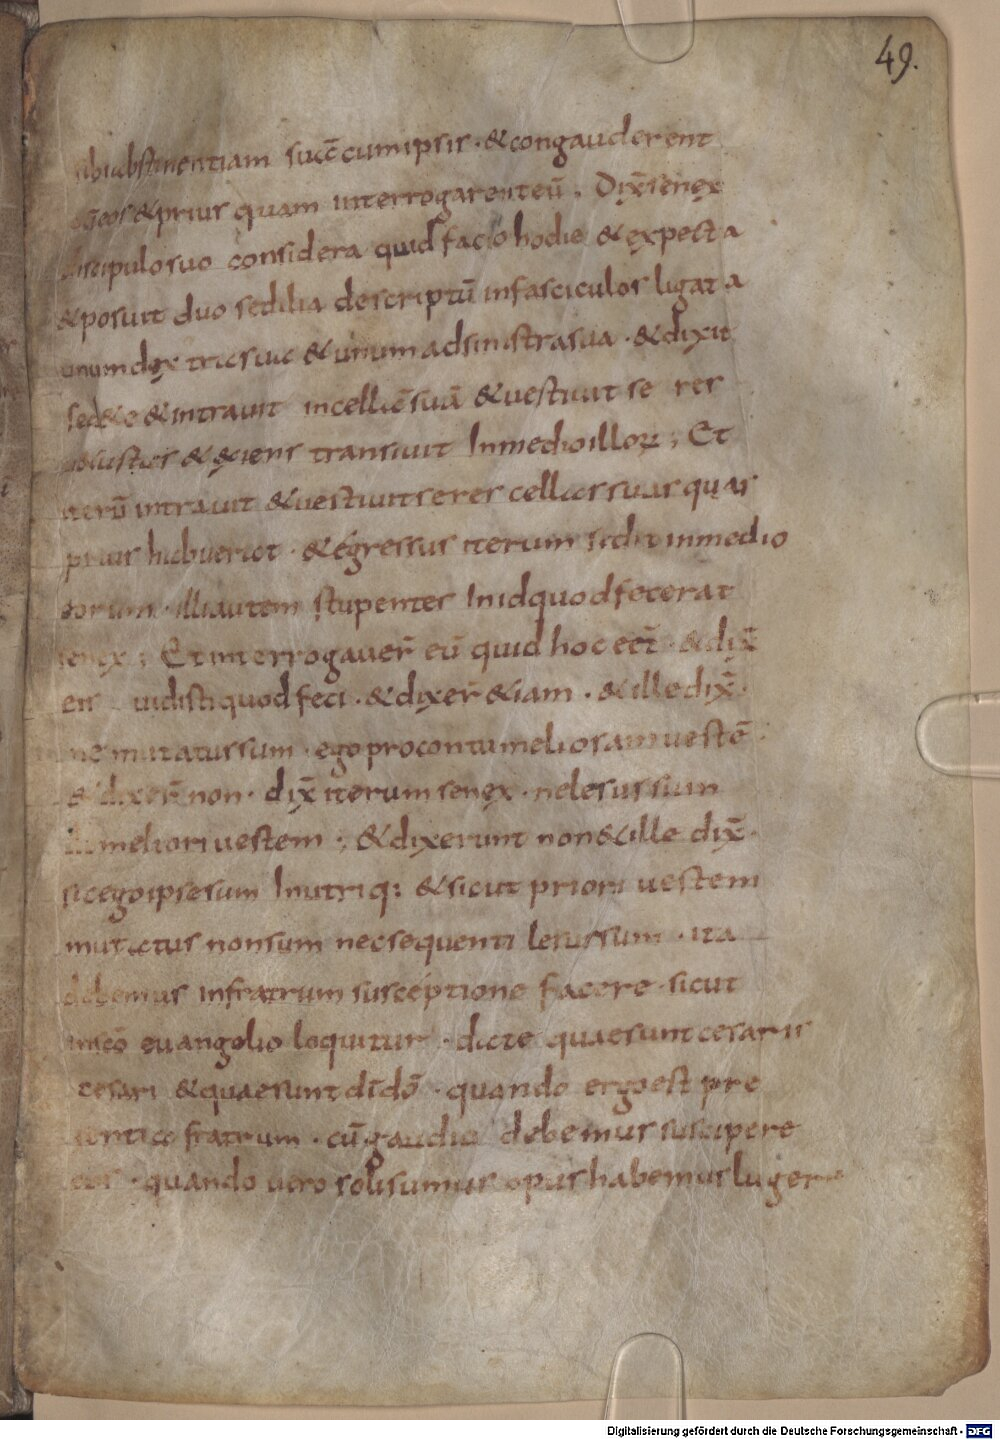 49.
abstinentiam suā cum ipsis · & congauderent
& prius quam interrogarent eū ; Dix̄ senex
discipulo suo considera quid facio hodie & expecta
& posuit duo sedilia descriptū in fasciculos ligata
unum dextrae suae & unum ad sinistra sua · & dixit
sedete & intravit in cellā suā & vestivit se res
& exiens transivit In medio illorꝝ ; Et
iterū intravit & vestivit se res cellares suas quas
prius habuerat · & egressus iterum sedit in medio
eorum · illi autem stupentes In id quod fecerat
senex ; Et interrogaver̄ eū quid hoc eēt · & dix̄
eis vidisti quod feci · & dixer̄ &iam · & ille dix̄ ·
ne mutatus sum · ego pro contumeliosam vestē
& dixer̄ non · dix̄ iterum senex · ne lesus sum
meliori vestem ; & dixerunt non & ille dix̄ ·
sic ego ipse sum In utriq; & sicut priori vestem
mutatus non sum nec sequenti lesus sum · ita
debemus in fratrum susceptione facere · sicut
in scō evangelio loquitur · date quae sunt cesaris
cesari & quae sunt dī dō · quando ergo est pre
sentia fratrum · cū gaudio debemus suscipere
eos · quando vero soli sumus opus habemus lugere
Digitalisierung gefördert durch die Deutsche Forschungsgemeinschaft - DFG